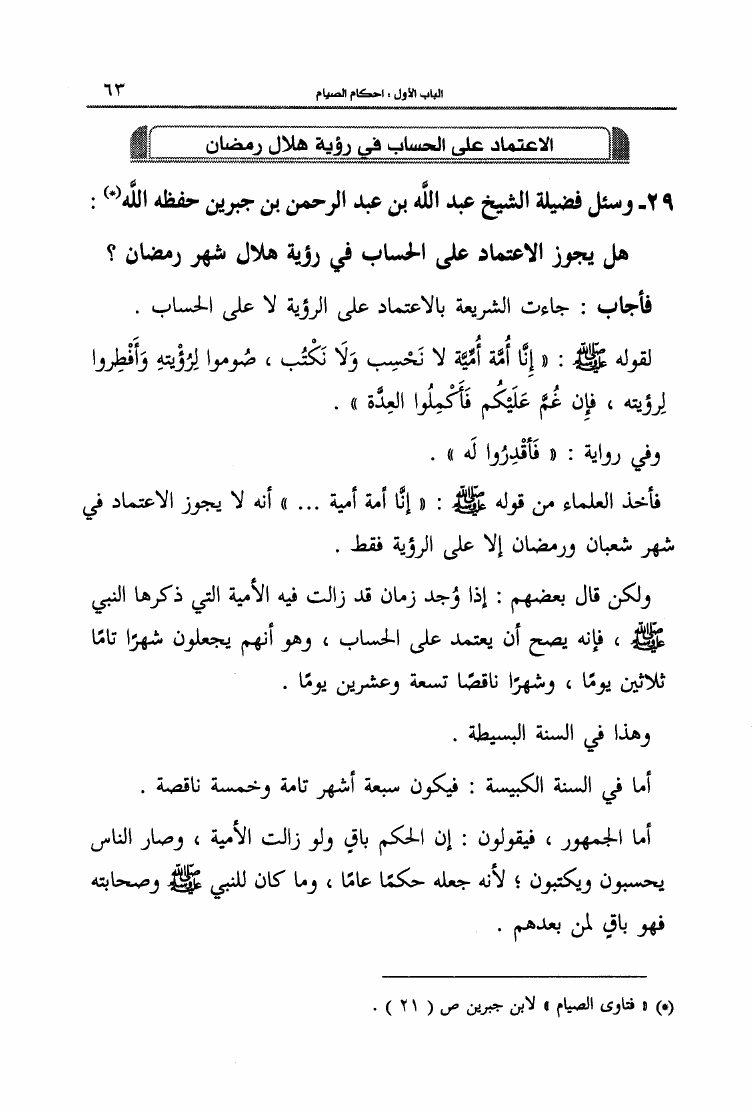 الباب الأول : أحكام الصيام ٦٣
الاعتماد على الحساب في رؤية هلال رمضان
٢٩- وسئل فضيلة الشيخ عبد الله بن عبد الرحمن بن جبرين حفظه الله(*) :
هل يجوز الاعتماد على الحساب في رؤية هلال شهر رمضان ؟
فأجاب : جاءت الشريعة بالاعتماد على الرؤية لا على الحساب .
لقوله ﷺ : « إِنَّا أُمَّة أُمِّيَّة لا نَحْسِب وَلَا نَكْتُب ، صُوموا لِرُؤْيتِهِ وَأَفْطِروا
لِرؤيته ، فإِن غُمَّ عَلَيْكُم فَأَكْمِلُوا العِدَّة » .
وفي رواية : « فَأَقْدِرُوا لَه » .
فأخذ العلماء من قوله ﷺ : « إنَّا أمة أمية ... » أنه لا يجوز الاعتماد في
شهر شعبان ورمضان إلا على الرؤية فقط .
ولكن قال بعضهم : إذا وُجد زمان قد زالت فيه الأمية التي ذكرها النبي
ﷺ ، فإنه يصح أن يعتمد على الحساب ، وهو أنهم يجعلون شهرًا تامًا
ثلاثين يومًا ، وشهرًا ناقصًا تسعة وعشرين يومًا .
وهذا في السنة البسيطة .
أما في السنة الكبيسة : فيكون سبعة أشهر تامة وخمسة ناقصة .
أما الجمهور ، فيقولون : إن الحكم باقٍ ولو زالت الأمية ، وصار الناس
يحسبون ويكتبون ؛ لأنه جعله حكمًا عامًا ، وما كان للنبي ﷺ وصحابته
فهو باقٍ لمن بعدهم .
(*) « فتاوى الصيام » لابن جبرين ص ( ٢١ ) .